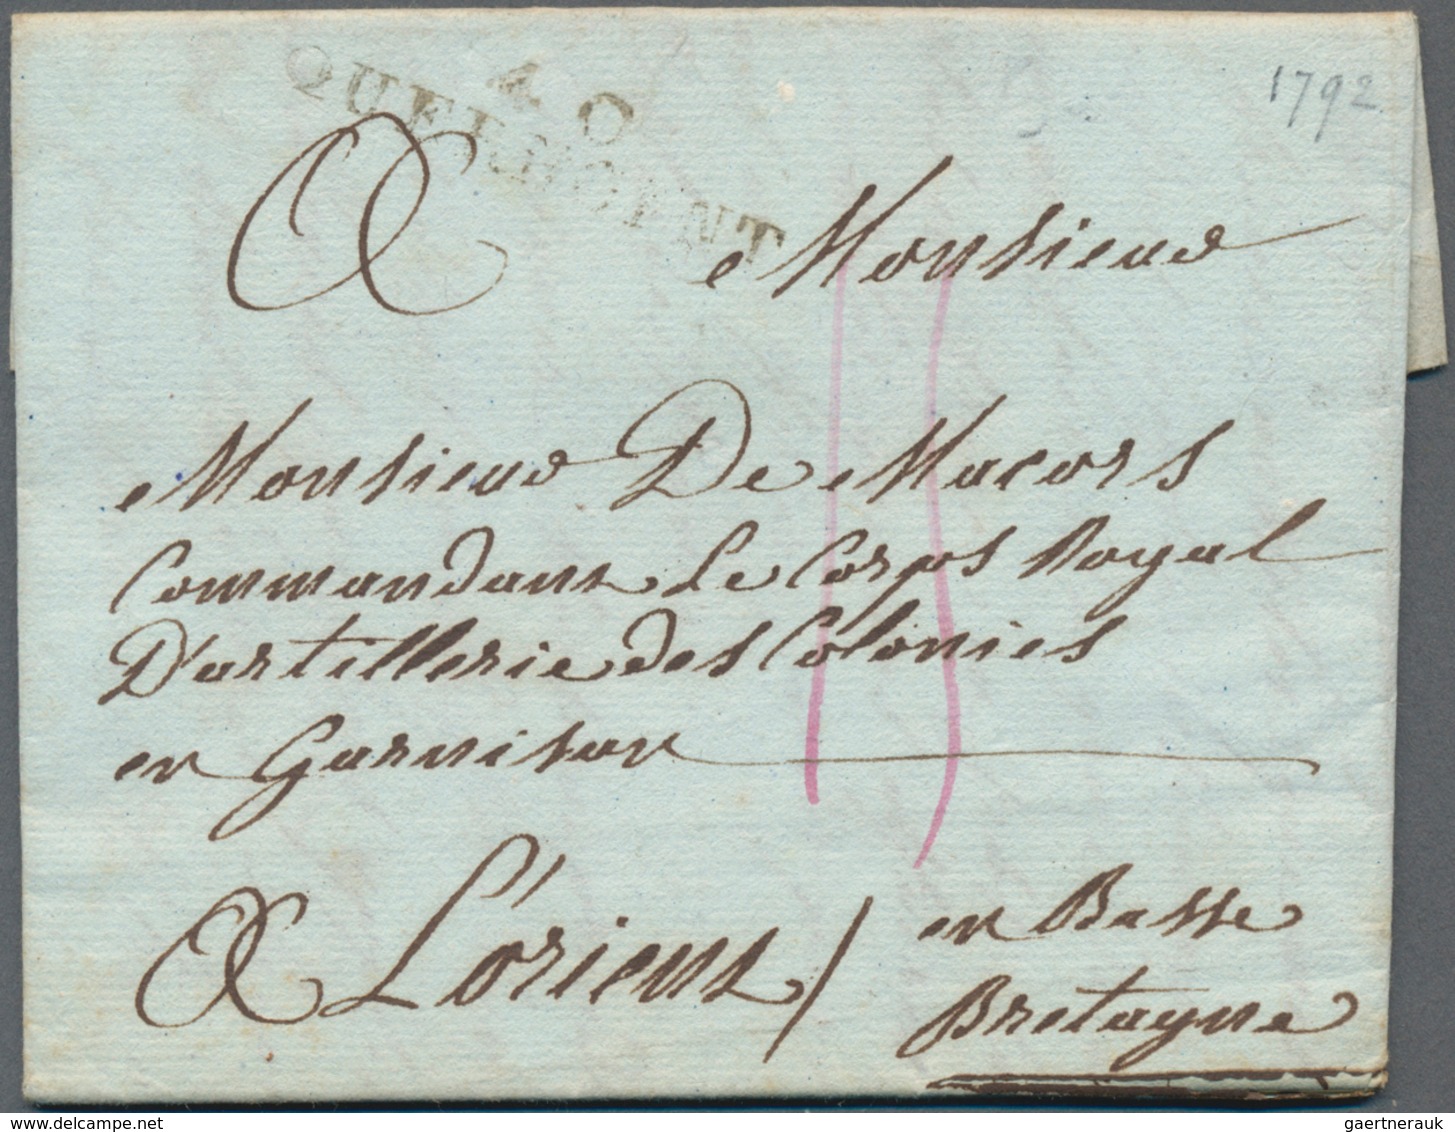 4. O
QUERHOENT
1792
A Monsieur
Monsieur De Macors
Commandant Le Corps Royal
D'artillerie des Colonies
en Garnison
A L'orient / en Basse
Bretagne
delcampe.net
gaertnerauk